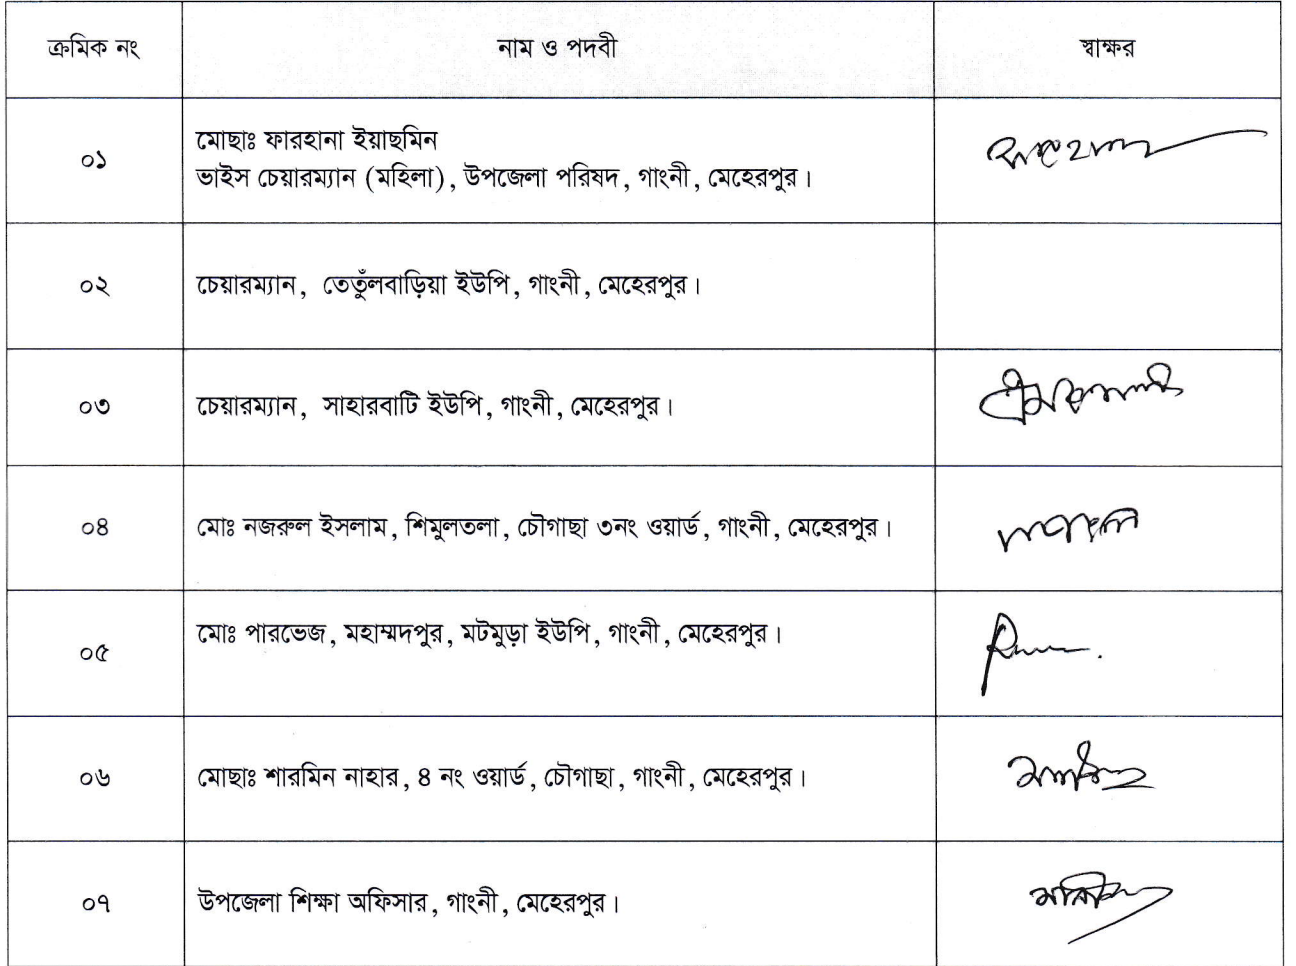 ক্রমিক নং নাম ও পদবী স্বাক্ষর
০১ মোছাঃ ফারহানা ইয়াছমিন
ভাইস চেয়ারম্যান (মহিলা), উপজেলা পরিষদ, গাংনী, মেহেরপুর।
০২ চেয়ারম্যান, তেতুঁলবাড়িয়া ইউপি, গাংনী, মেহেরপুর।
০৩ চেয়ারম্যান, সাহারবাটি ইউপি, গাংনী, মেহেরপুর।
০৪ মোঃ নজরুল ইসলাম, শিমুলতলা, চৌগাছা ৩নং ওয়ার্ড, গাংনী, মেহেরপুর।
০৫ মোঃ পারভেজ, মহাম্মদপুর, মটমুড়া ইউপি, গাংনী, মেহেরপুর।
০৬ মোছাঃ শারমিন নাহার, ৪ নং ওয়ার্ড, চৌগাছা, গাংনী, মেহেরপুর।
০৭ উপজেলা শিক্ষা অফিসার, গাংনী, মেহেরপুর।